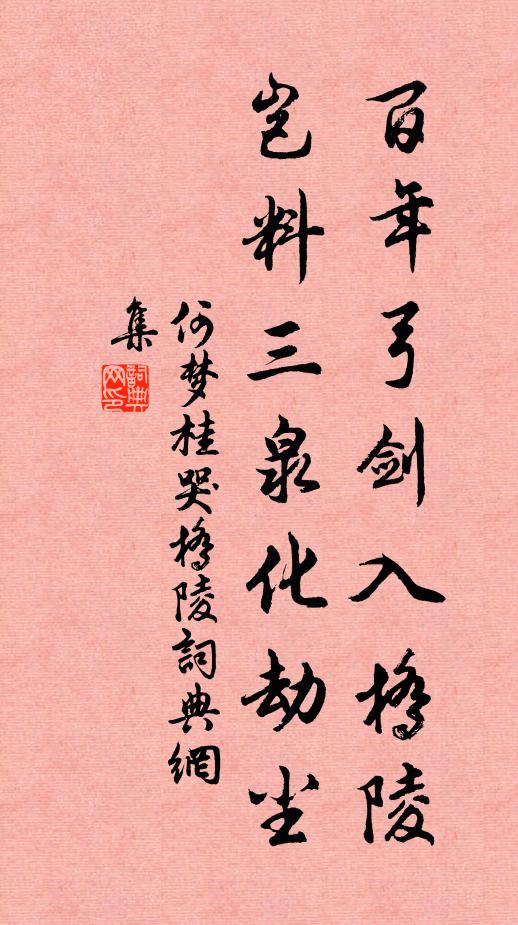 百年弓剑入桥陵
岂料三泉化劫尘
何梦桂哭桥陵詞典網
集
詞典
网印